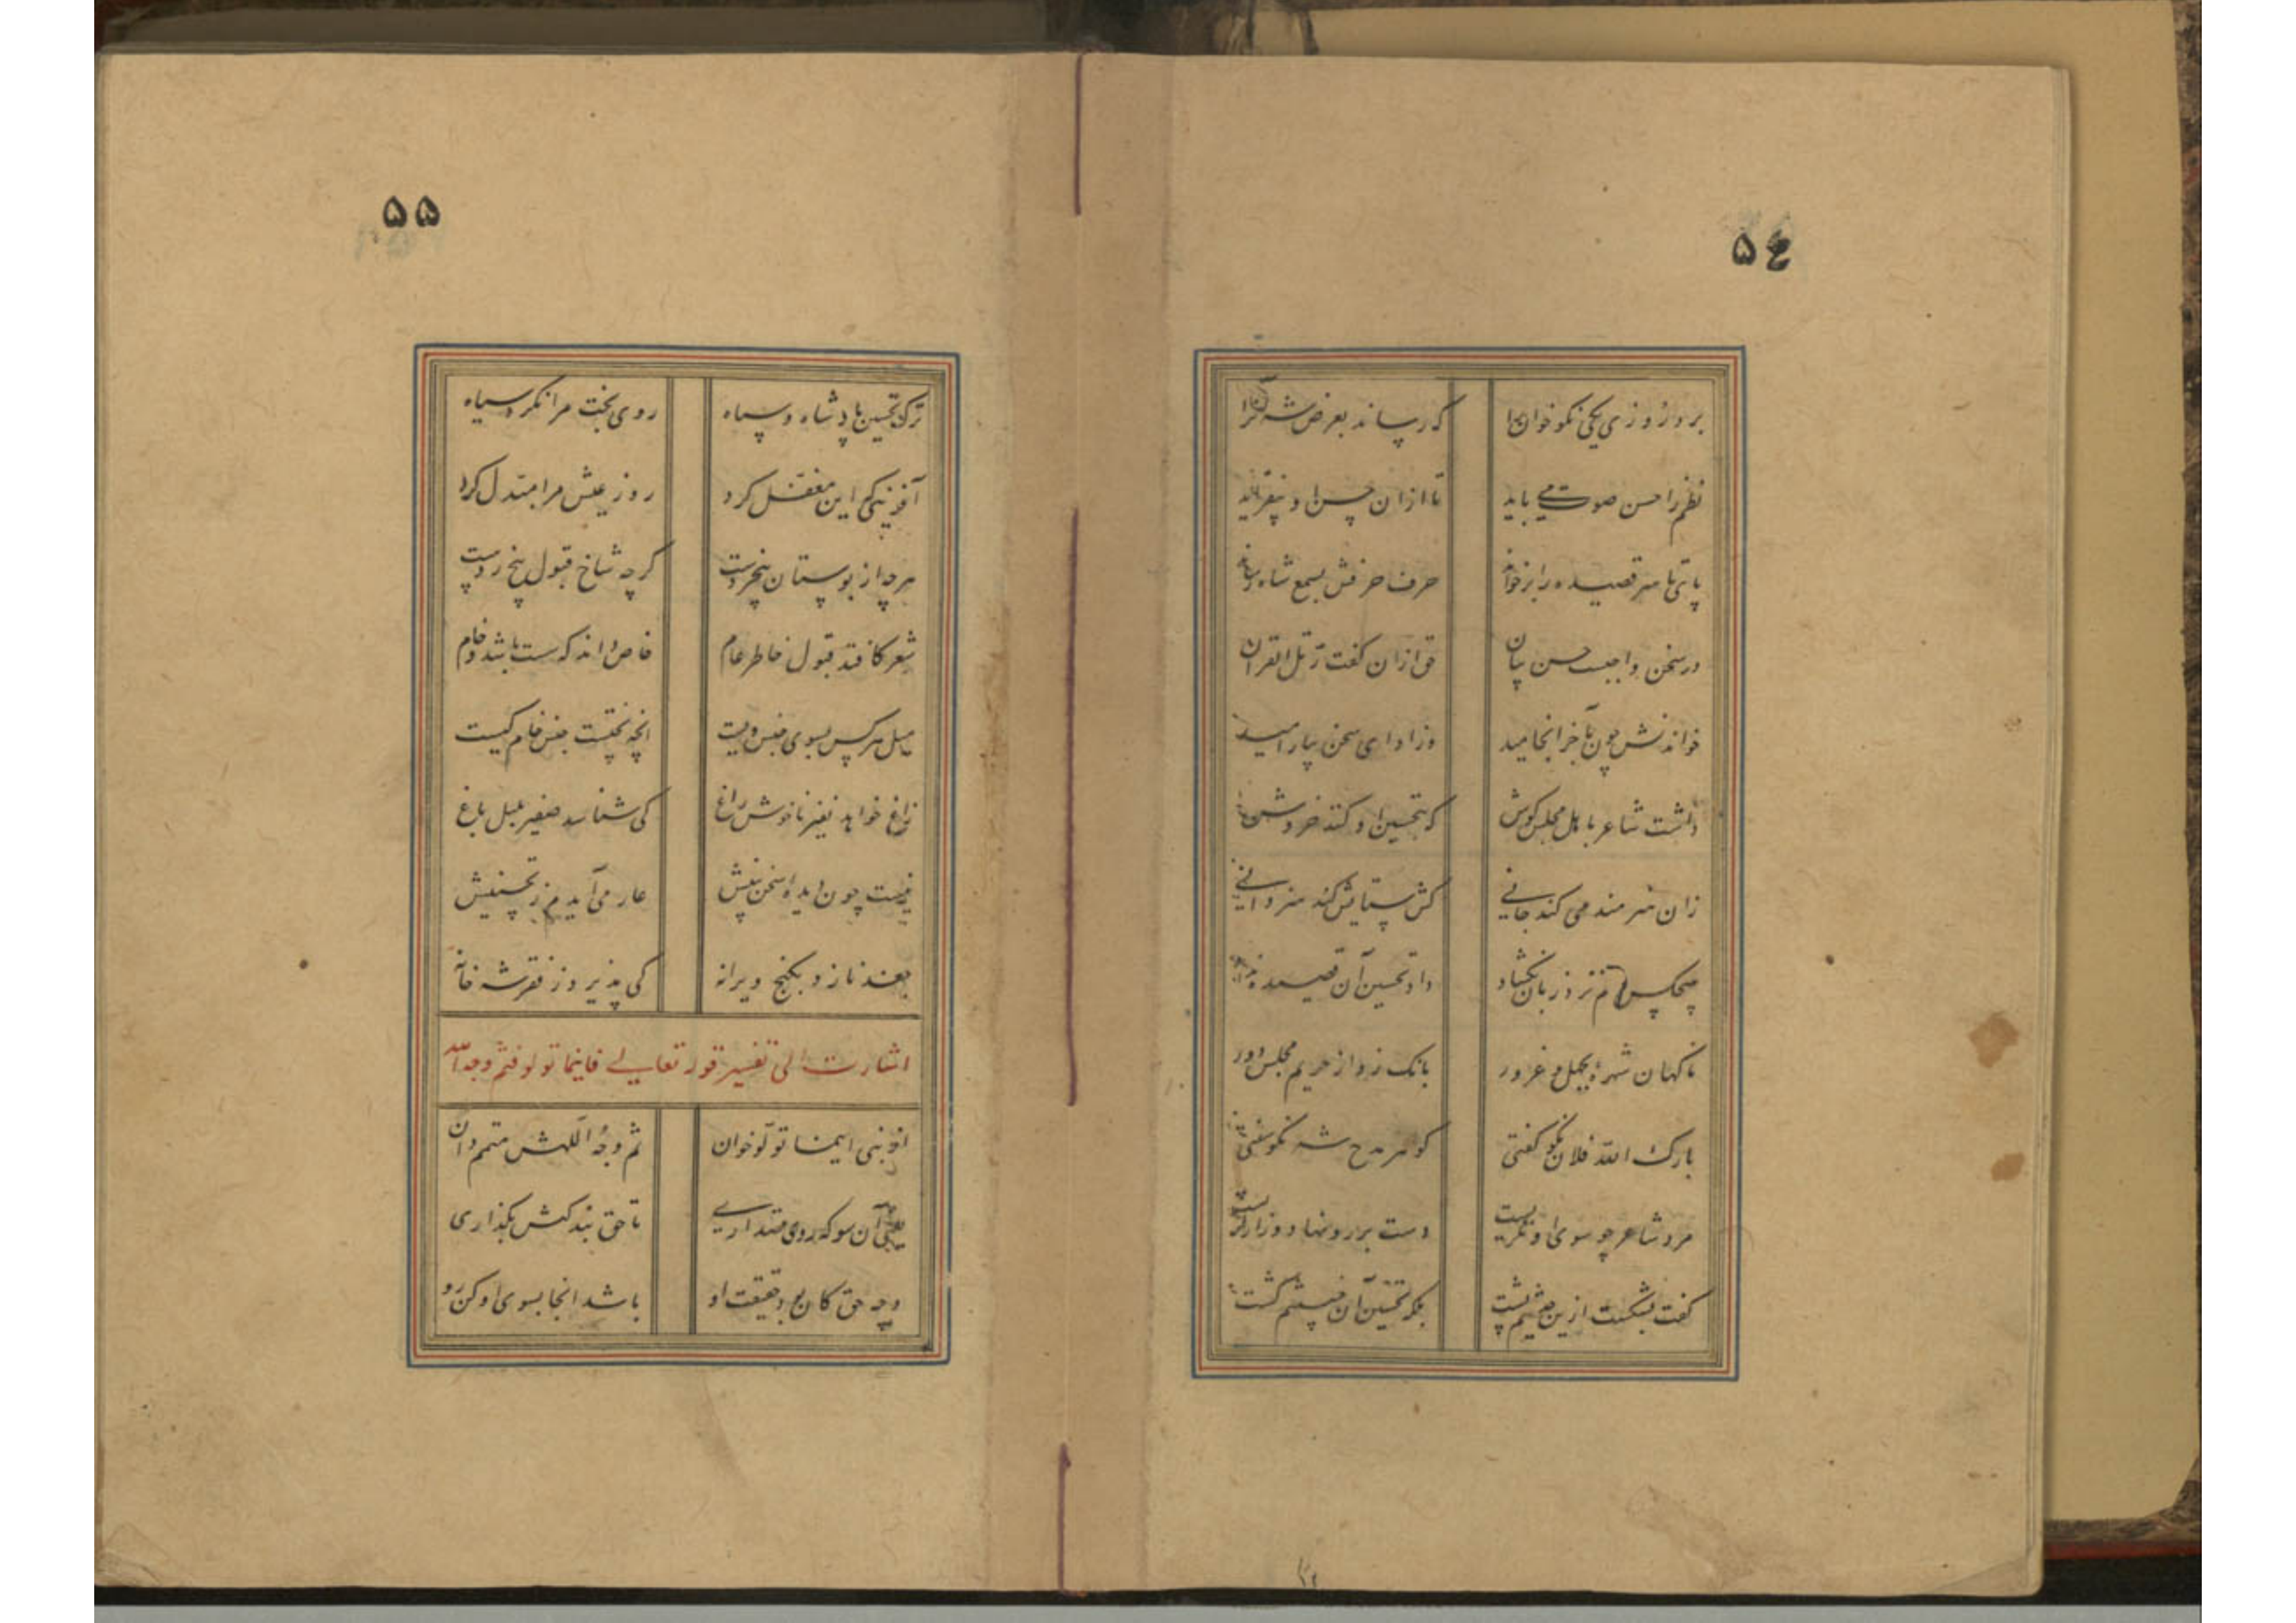 ۵٤
برد روزی یکی نکو خوان را
که رساند بعرض شه آنرا
نظم را حسن صوت می باید
تا ازان حسن او بیفزاید
پای تا سر قصیده را برخواند
حرف حرفش بسمع شاه رساند
در سخن واجبست حسن بیان
حق ازان گفت رتل القران
خواندنش چون بآخر انجامید
وز ادای سخن بیارامید
داشت شاعر باهل مجلس گوش
که بتحسین او کنند خروش
زان هنرمند می کند جانی
کش ستایش کند هنردانی
هیچکس دم نزد زبان نگشاد
داد تحسین آن قصیده نداد
ناگهان شهرهٔ بجهل و غرور
بانگ زد از حریم مجلس دور
بارک الله فلان نکو گفتی
گوهر مدح شه نکو سفتی
مرد شاعر چو سوی او نگریست
دست بر رو نهاد و زار گریست
گفت بشکست ازین حدیثم پشت
بلکه تحسین آن خسیسم کشت
۵۵
ترک تحسین پادشاه و سپاه
روی بخت مرا نکرد سیاه
آفرینی کم این مغفل کرد
روز عیش مرا مبدل کرد
هر چه از بوستان بیخردست
گرچه شاخ قبول بیخ ردست
شعر کافتد قبول خاطر عام
خاص داند که سست باشد و خام
میل هر کس بسوی جنس ویست
آنچه پختست جنس خام کیست
زاغ خواهد نفیر ناخوش زاغ
کی شناسد صفیر بلبل باغ
نیست چون دیدهٔ سخن بینش
عار می آیدم ز تحسینش
جغد نازد بکنج ویرانه
کی پذیرد ز قصر شه خانه
اشارت الی تفسیر قوله تعالی فاینما تولوا فثم وجه الله
از نبی اینما تولوا خوان
ثم وجه اللهش متمم دان
یعنی آن سو که روی قصد آری
تا حق بندگیش بگذاری
وجه حق کان بود حقیقت او
باشد انجا بسوی او کن رو